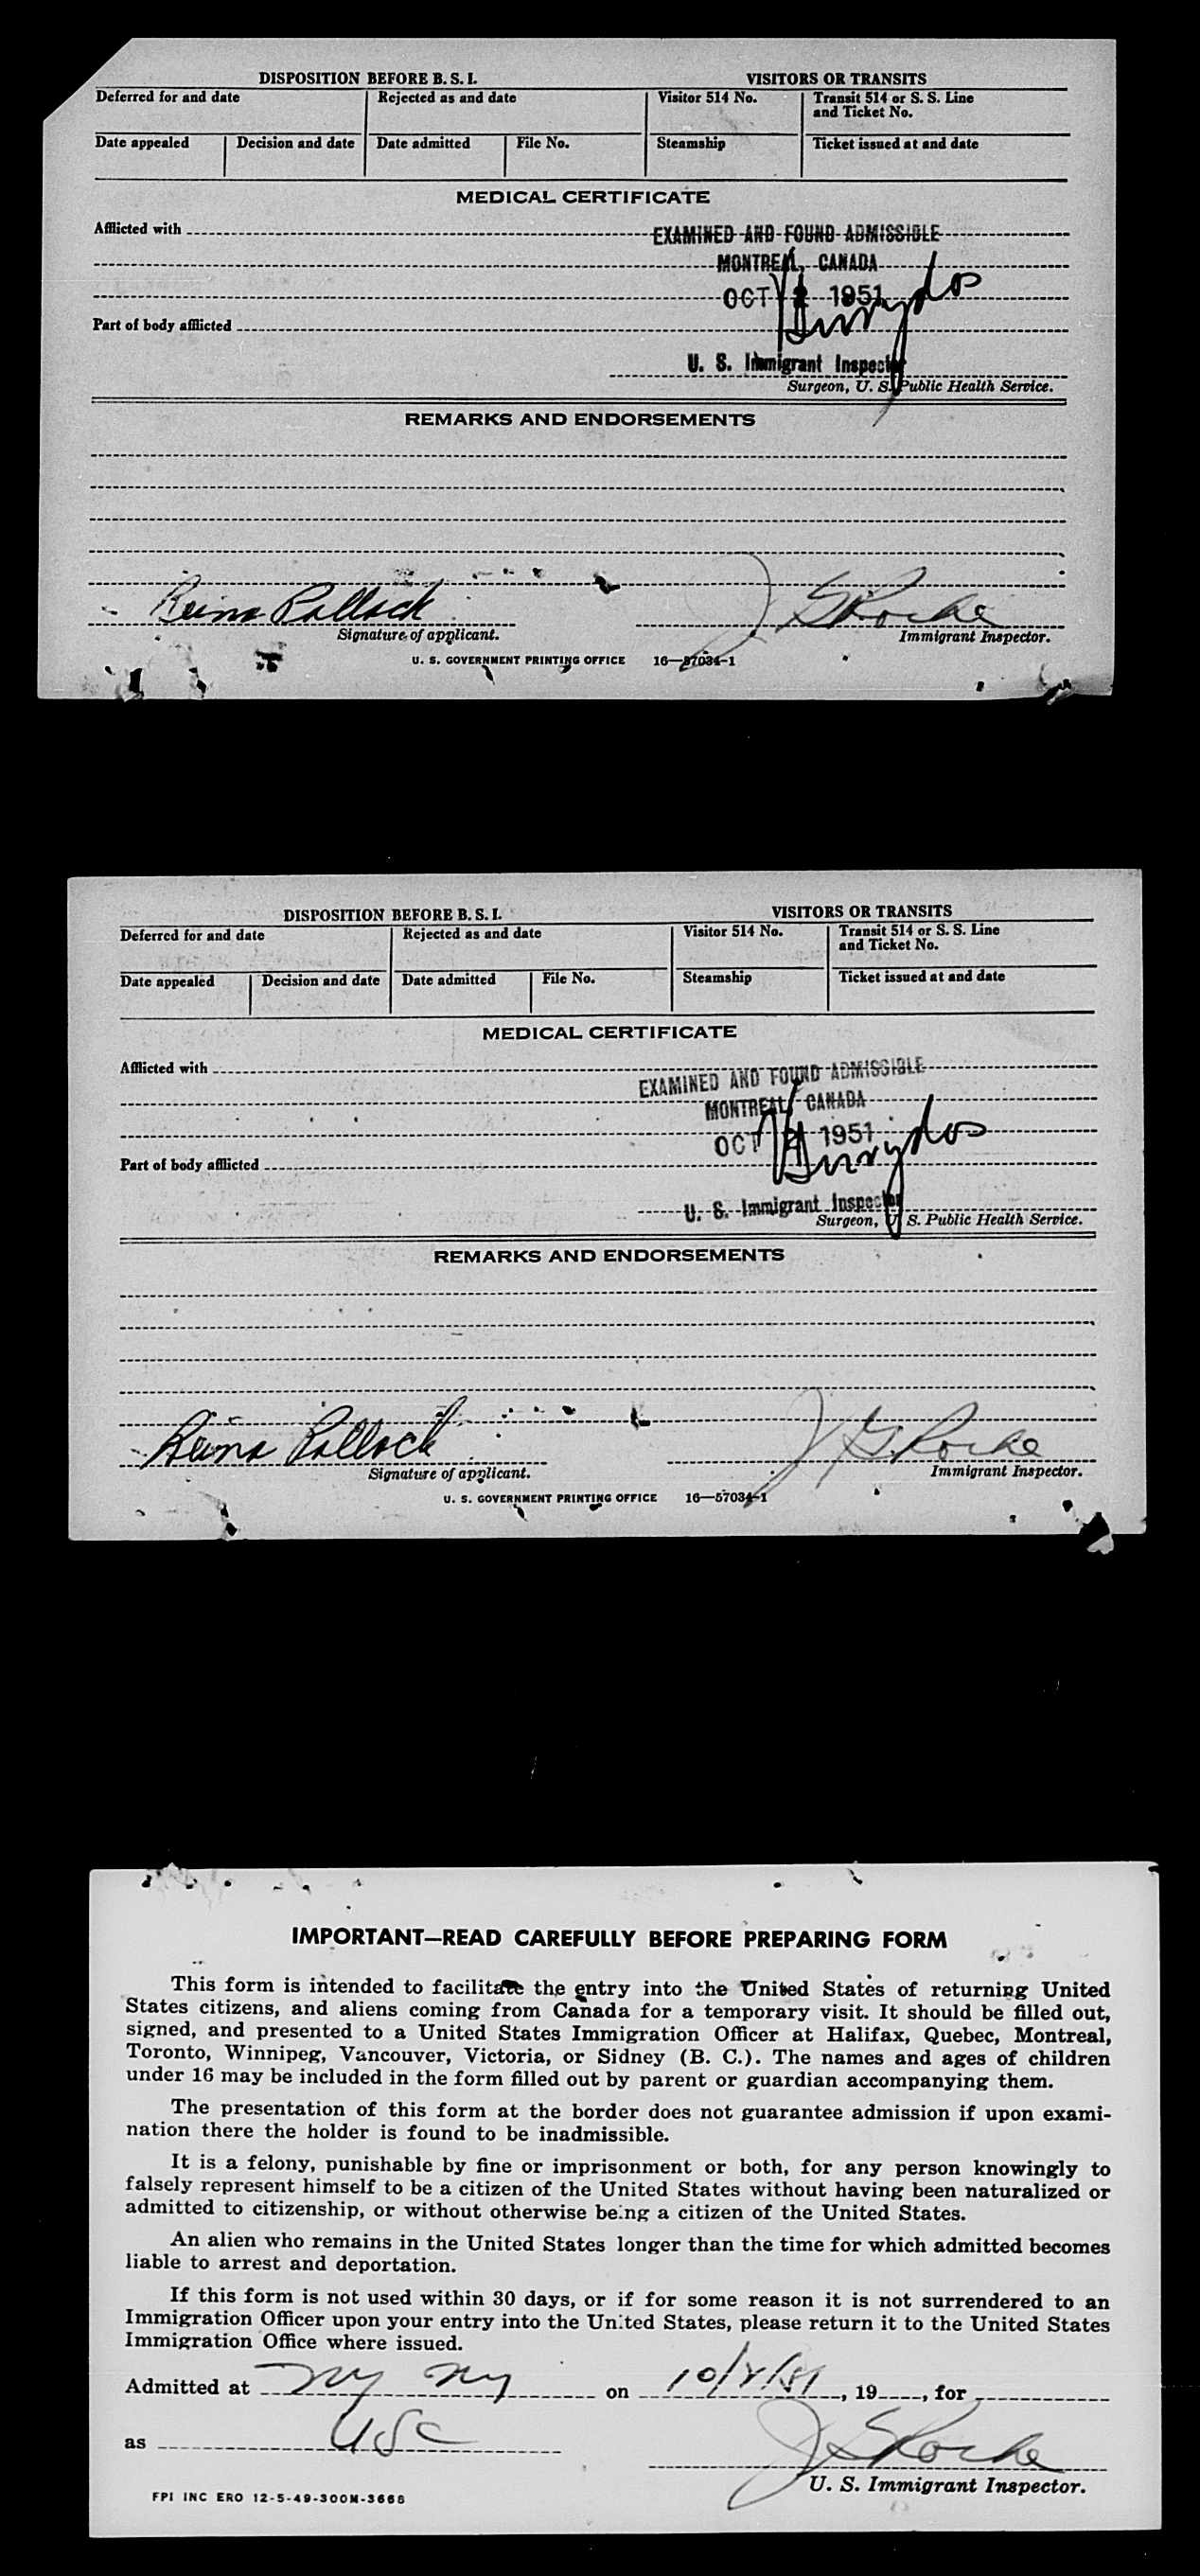 DISPOSITION BEFORE B. S. I. VISITORS OR TRANSITS
Deferred for and date Rejected as and date Visitor 514 No. Transit 514 or S. S. Line and Ticket No.
Date appealed Decision and date Date admitted File No. Steamship Ticket issued at and date
MEDICAL CERTIFICATE
Afflicted with
EXAMINED AND FOUND ADMISSIBLE
MONTREAL, CANADA
OCT 2 1951
Part of body afflicted
U. S. Immigrant Inspector
Surgeon, U. S. Public Health Service.
REMARKS AND ENDORSEMENTS
Pollock J G Roche
Signature of applicant. Immigrant Inspector.
U. S. GOVERNMENT PRINTING OFFICE 16—57034-1
DISPOSITION BEFORE B. S. I. VISITORS OR TRANSITS
Deferred for and date Rejected as and date Visitor 514 No. Transit 514 or S. S. Line and Ticket No.
Date appealed Decision and date Date admitted File No. Steamship Ticket issued at and date
MEDICAL CERTIFICATE
Afflicted with
EXAMINED AND FOUND ADMISSIBLE
MONTREAL, CANADA
OCT 2 1951
Part of body afflicted
U. S. Immigrant Inspector
Surgeon, U. S. Public Health Service.
REMARKS AND ENDORSEMENTS
Pollock J G. Roche
Signature of applicant. Immigrant Inspector.
U. S. GOVERNMENT PRINTING OFFICE 16—57034-1
IMPORTANT—READ CAREFULLY BEFORE PREPARING FORM
This form is intended to facilitate the entry into the United States of returning United
States citizens, and aliens coming from Canada for a temporary visit. It should be filled out,
signed, and presented to a United States Immigration Officer at Halifax, Quebec, Montreal,
Toronto, Winnipeg, Vancouver, Victoria, or Sidney (B. C.). The names and ages of children
under 16 may be included in the form filled out by parent or guardian accompanying them.
The presentation of this form at the border does not guarantee admission if upon exami-
nation there the holder is found to be inadmissible.
It is a felony, punishable by fine or imprisonment or both, for any person knowingly to
falsely represent himself to be a citizen of the United States without having been naturalized or
admitted to citizenship, or without otherwise being a citizen of the United States.
An alien who remains in the United States longer than the time for which admitted becomes
liable to arrest and deportation.
If this form is not used within 30 days, or if for some reason it is not surrendered to an
Immigration Officer upon your entry into the United States, please return it to the United States
Immigration Office where issued.
Admitted at NY NY on 10/2/51, 19 , for
as USC J G Roche
U. S. Immigrant Inspector.
FPI INC ERO 12-5-49-300M-3668